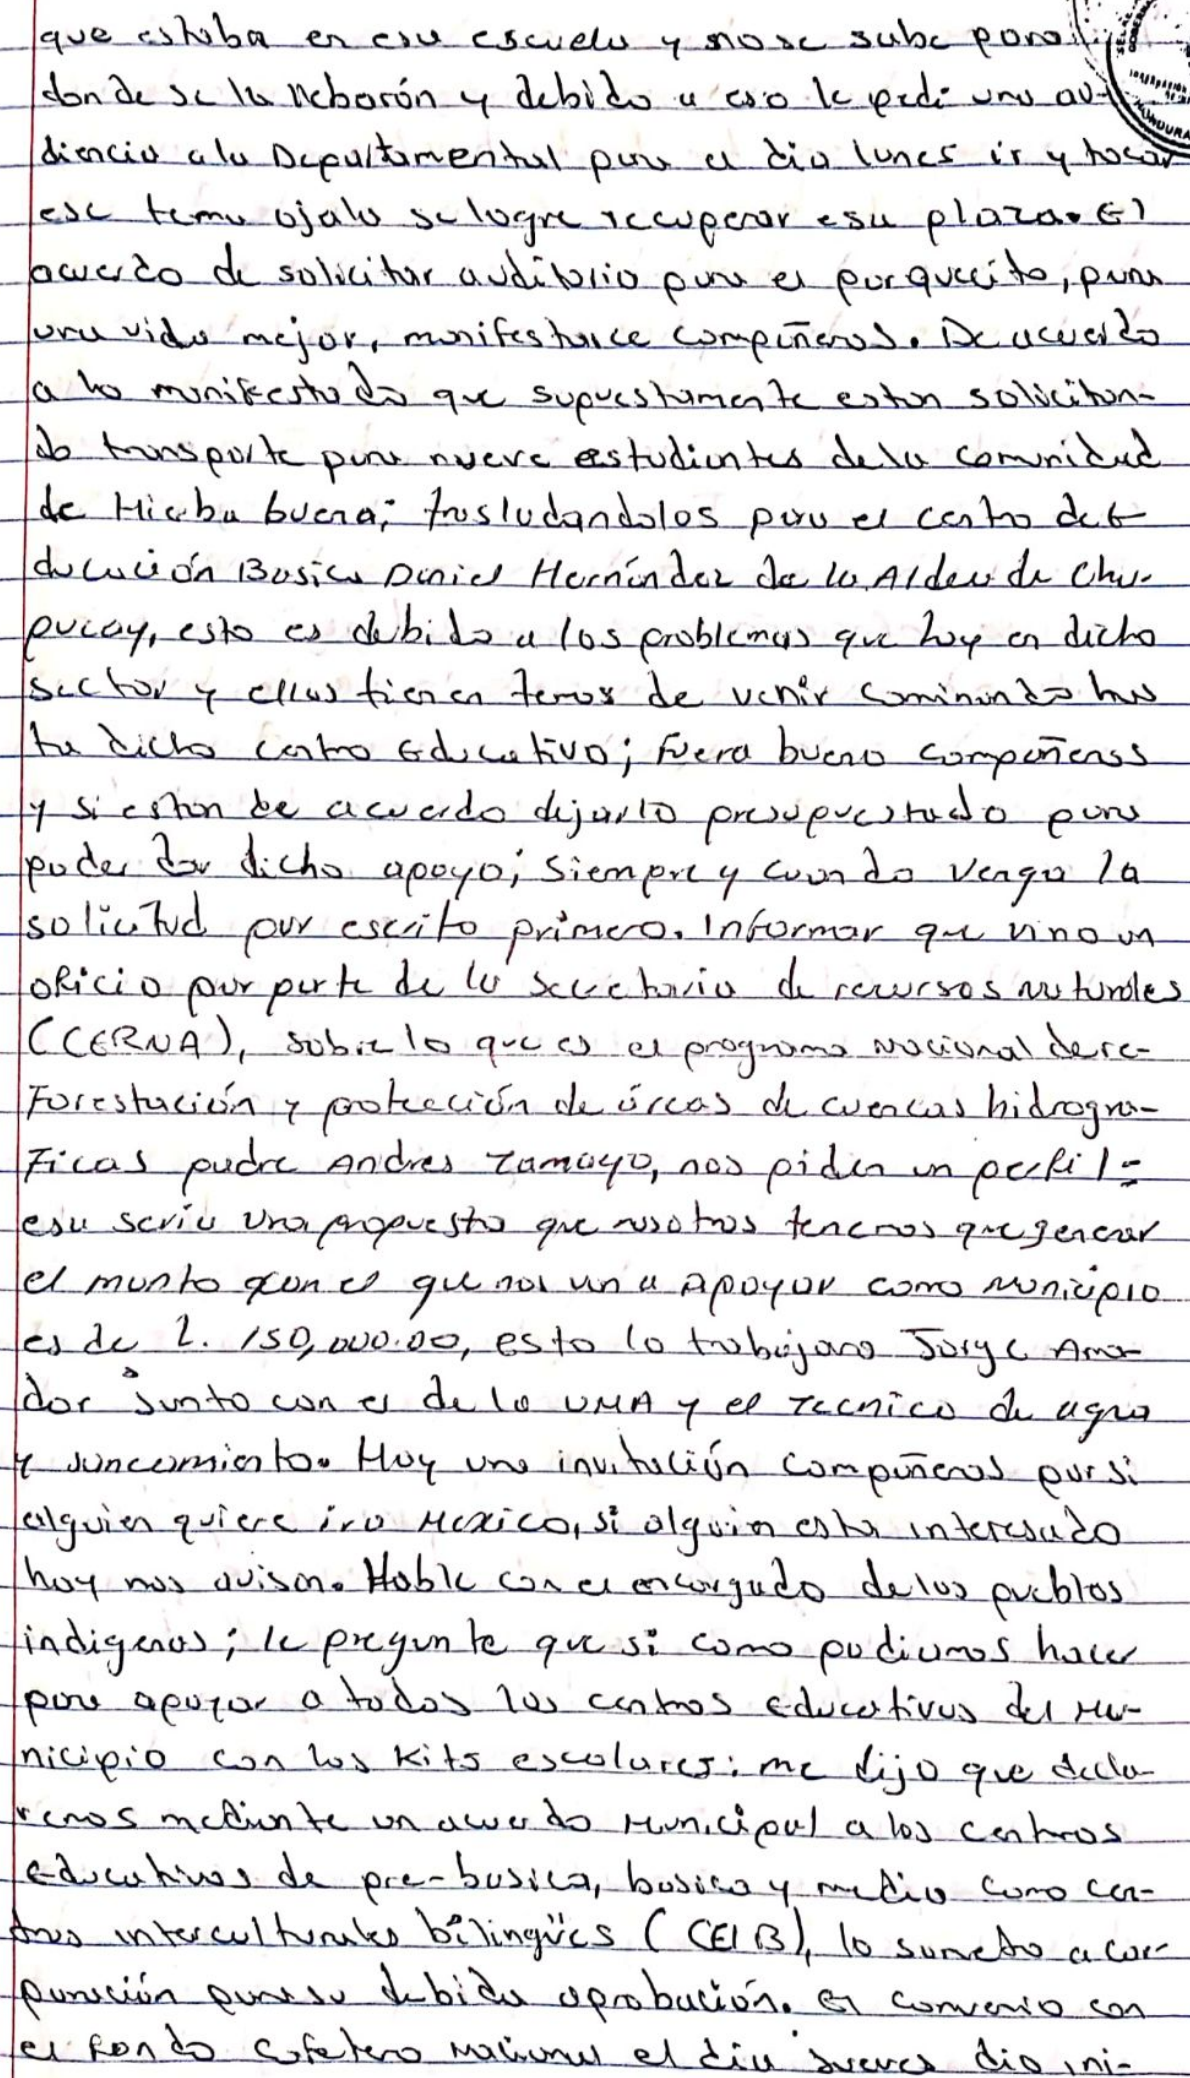 que estaba en esa escuela y no se sabe para
donde se la llebarón y debido a eso le pedi una au-
diencia a la Departamental para el dia lunes ir y tocar
ese tema ojala se logre recuperar esa plaza. El
acuerdo de solicitar auditorio para el parquecito, para
una vida mejor, manifestarce compañeros. De acuerdo
a lo manifestado que supuestamente estan solicitan-
do transporte para nueve estudiantes de la comunidad
de Hierba buena; trasladandolos para el centro de E-
ducación Basica Daniel Hernández de la Aldea de Cha-
pucay, esto es debido a los problemas que hay en dicho
sector y ellas tienen temor de venir caminando has
ta dicho centro Educativo; fuera bueno compañeros
y si estan de acuerdo dejarlo presupuestado para
poder dar dicho apoyo; Siempre y cuando venga la
solicitud por escrito primero. Informar que vino un
oficio por parte de la secretaria de recursos naturales
(CERNA), sobre lo que es el programa nacional de re-
Forestación y protección de áreas de cuencas hidrogra-
Ficas padre Andres Tamayo, nos piden un perfil =
esa seria una propuesta que nosotros tenemos que generar
el monto con el que nos van a apoyar como Municipio
es de L. 150,000.00, esto lo trabajara Jorge Ama-
dor junto con el de la UMA y el Tecnico de agua
y saneamiento. Hay una invitación compañeros por si
alguien quiere ir a Mexico, si alguien esta interesado
hoy nos avisan. Hable con el encargado de los pueblos
indigenas; le pregunte que si como podiamos hacer
para apoyar a todos los centros Educativos del Mu-
nicipio con los Kits escolares: me dijo que decla-
remos mediante un acuerdo Municipal a los centros
Educativos de pre-basica, basica y media como cen-
tros interculturales bilingües (CEIB), lo someto a cor-
poración para su debida aprobación. El convenio con
el Fondo Cafetero Nacional el dia jueves dio ini-